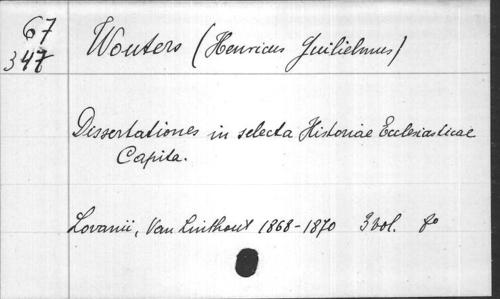 67 Wouters (Henricus Guilielmus)
347
Dissertationes in selecta Historiae Ecclesiasticae
Capita.
Lovanii, Van Linthout 1868-1870 3 vol. 8o